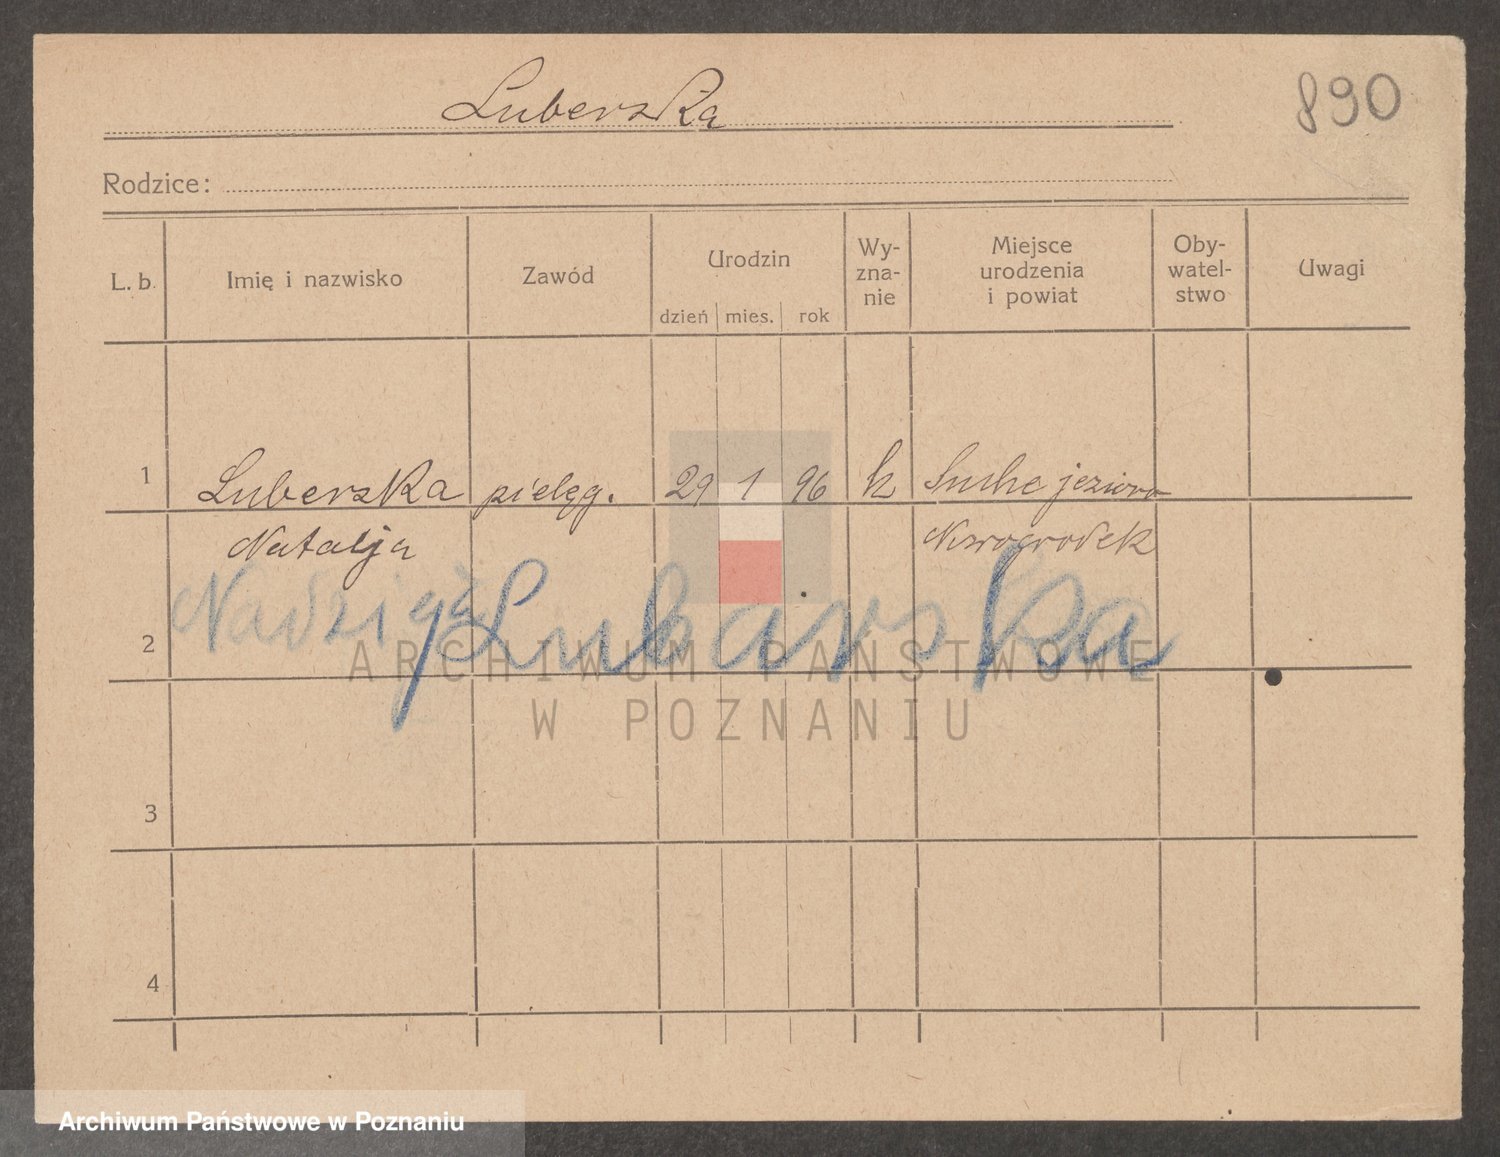 Luberska
890
Rodzice:
L. b. Imię i nazwisko Zawód Urodzin dzień mies. rok Wy-zna-nie Miejsce urodzenia i powiat Oby-watel-stwo Uwagi
1 Luberska pielęg. 29 1 96 k Suche jezioro
Natalja Nowogrodek
Nadzieja Lubarska
2
ARCHIWUM PAŃSTWOWE
W POZNANIU
3
4
Archiwum Państwowe w Poznaniu